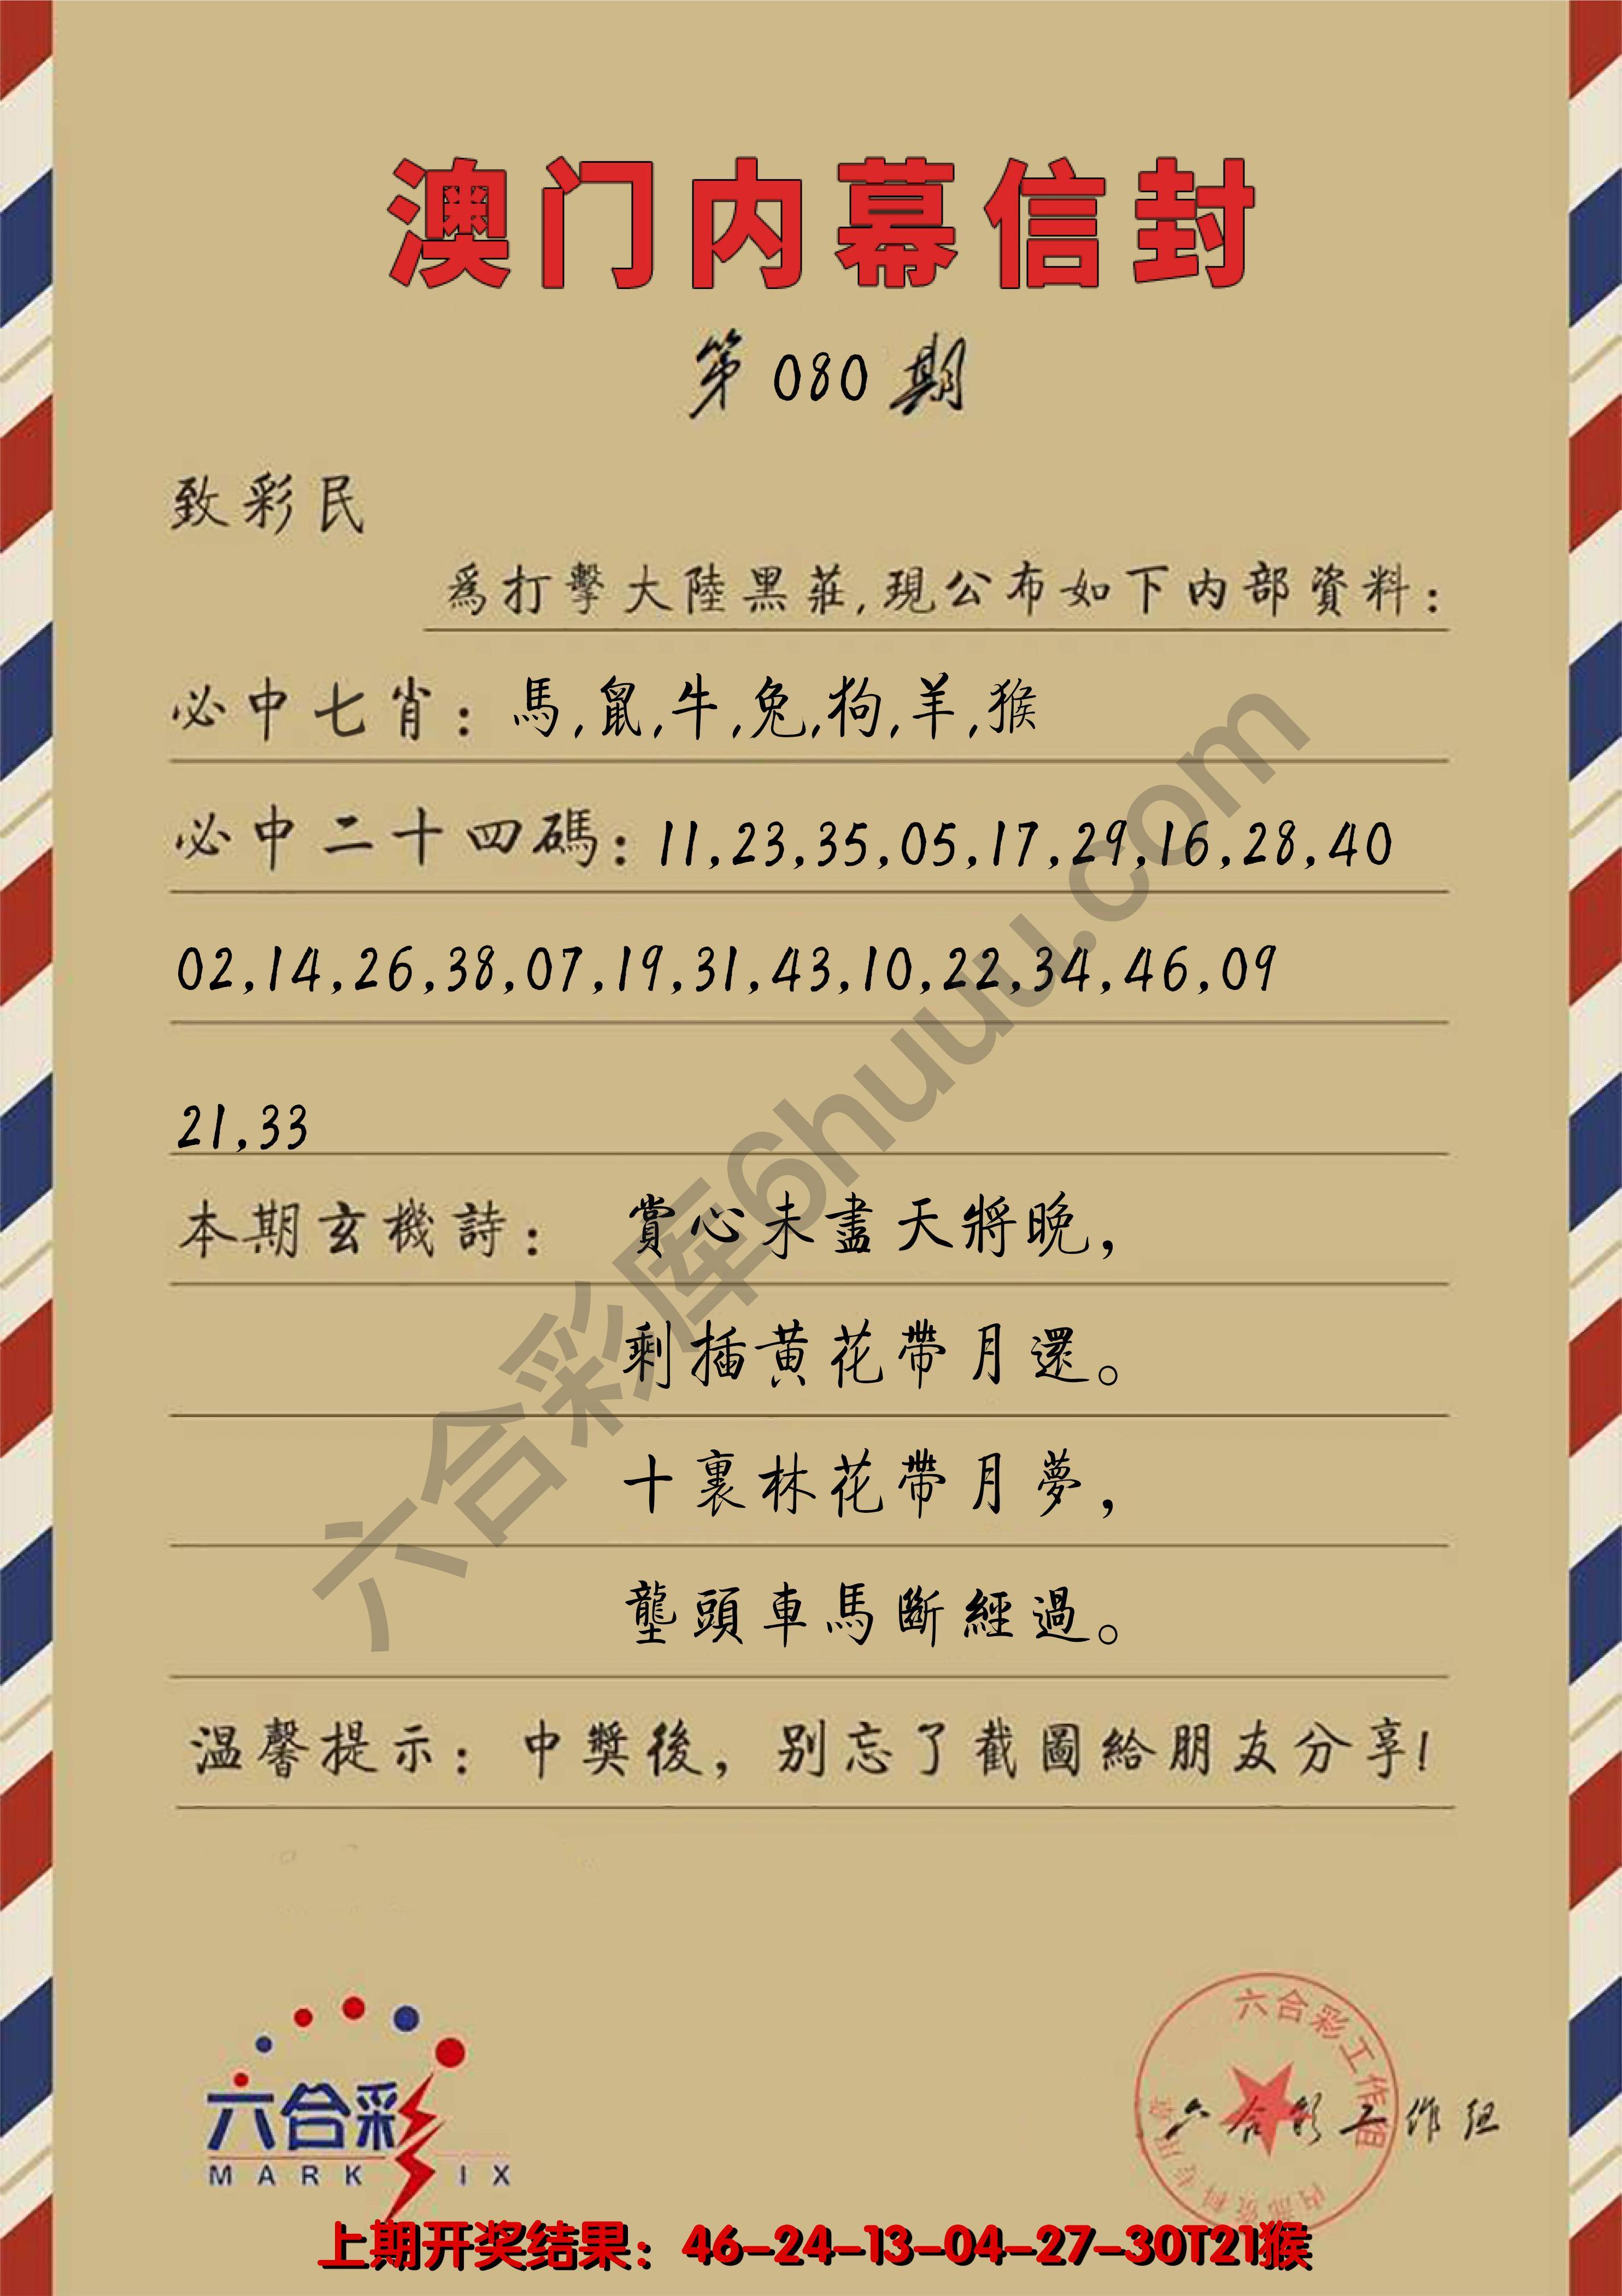 澳门内幕信封
第080期
致彩民
爲打擊大陸黑莊,現公布如下内部資料:
必中七肖:馬,鼠,牛,兔,狗,羊,猴
必中二十四碼:11,23,35,05,17,29,16,28,40
02,14,26,38,07,19,31,43,10,22,34,46,09
21,33
本期玄機詩: 賞心未盡天將晚,
剩插黄花帶月還。
十裏林花帶月夢,
壟頭車馬斷經過。
温馨提示:中獎後,别忘了截圖給朋友分享!
六合彩库6huuu.com
六合彩
MARK IX
六合彩工作组
内部资料专用章
六合彩工作组
上期开奖结果:46-24-13-04-27-30T21猴